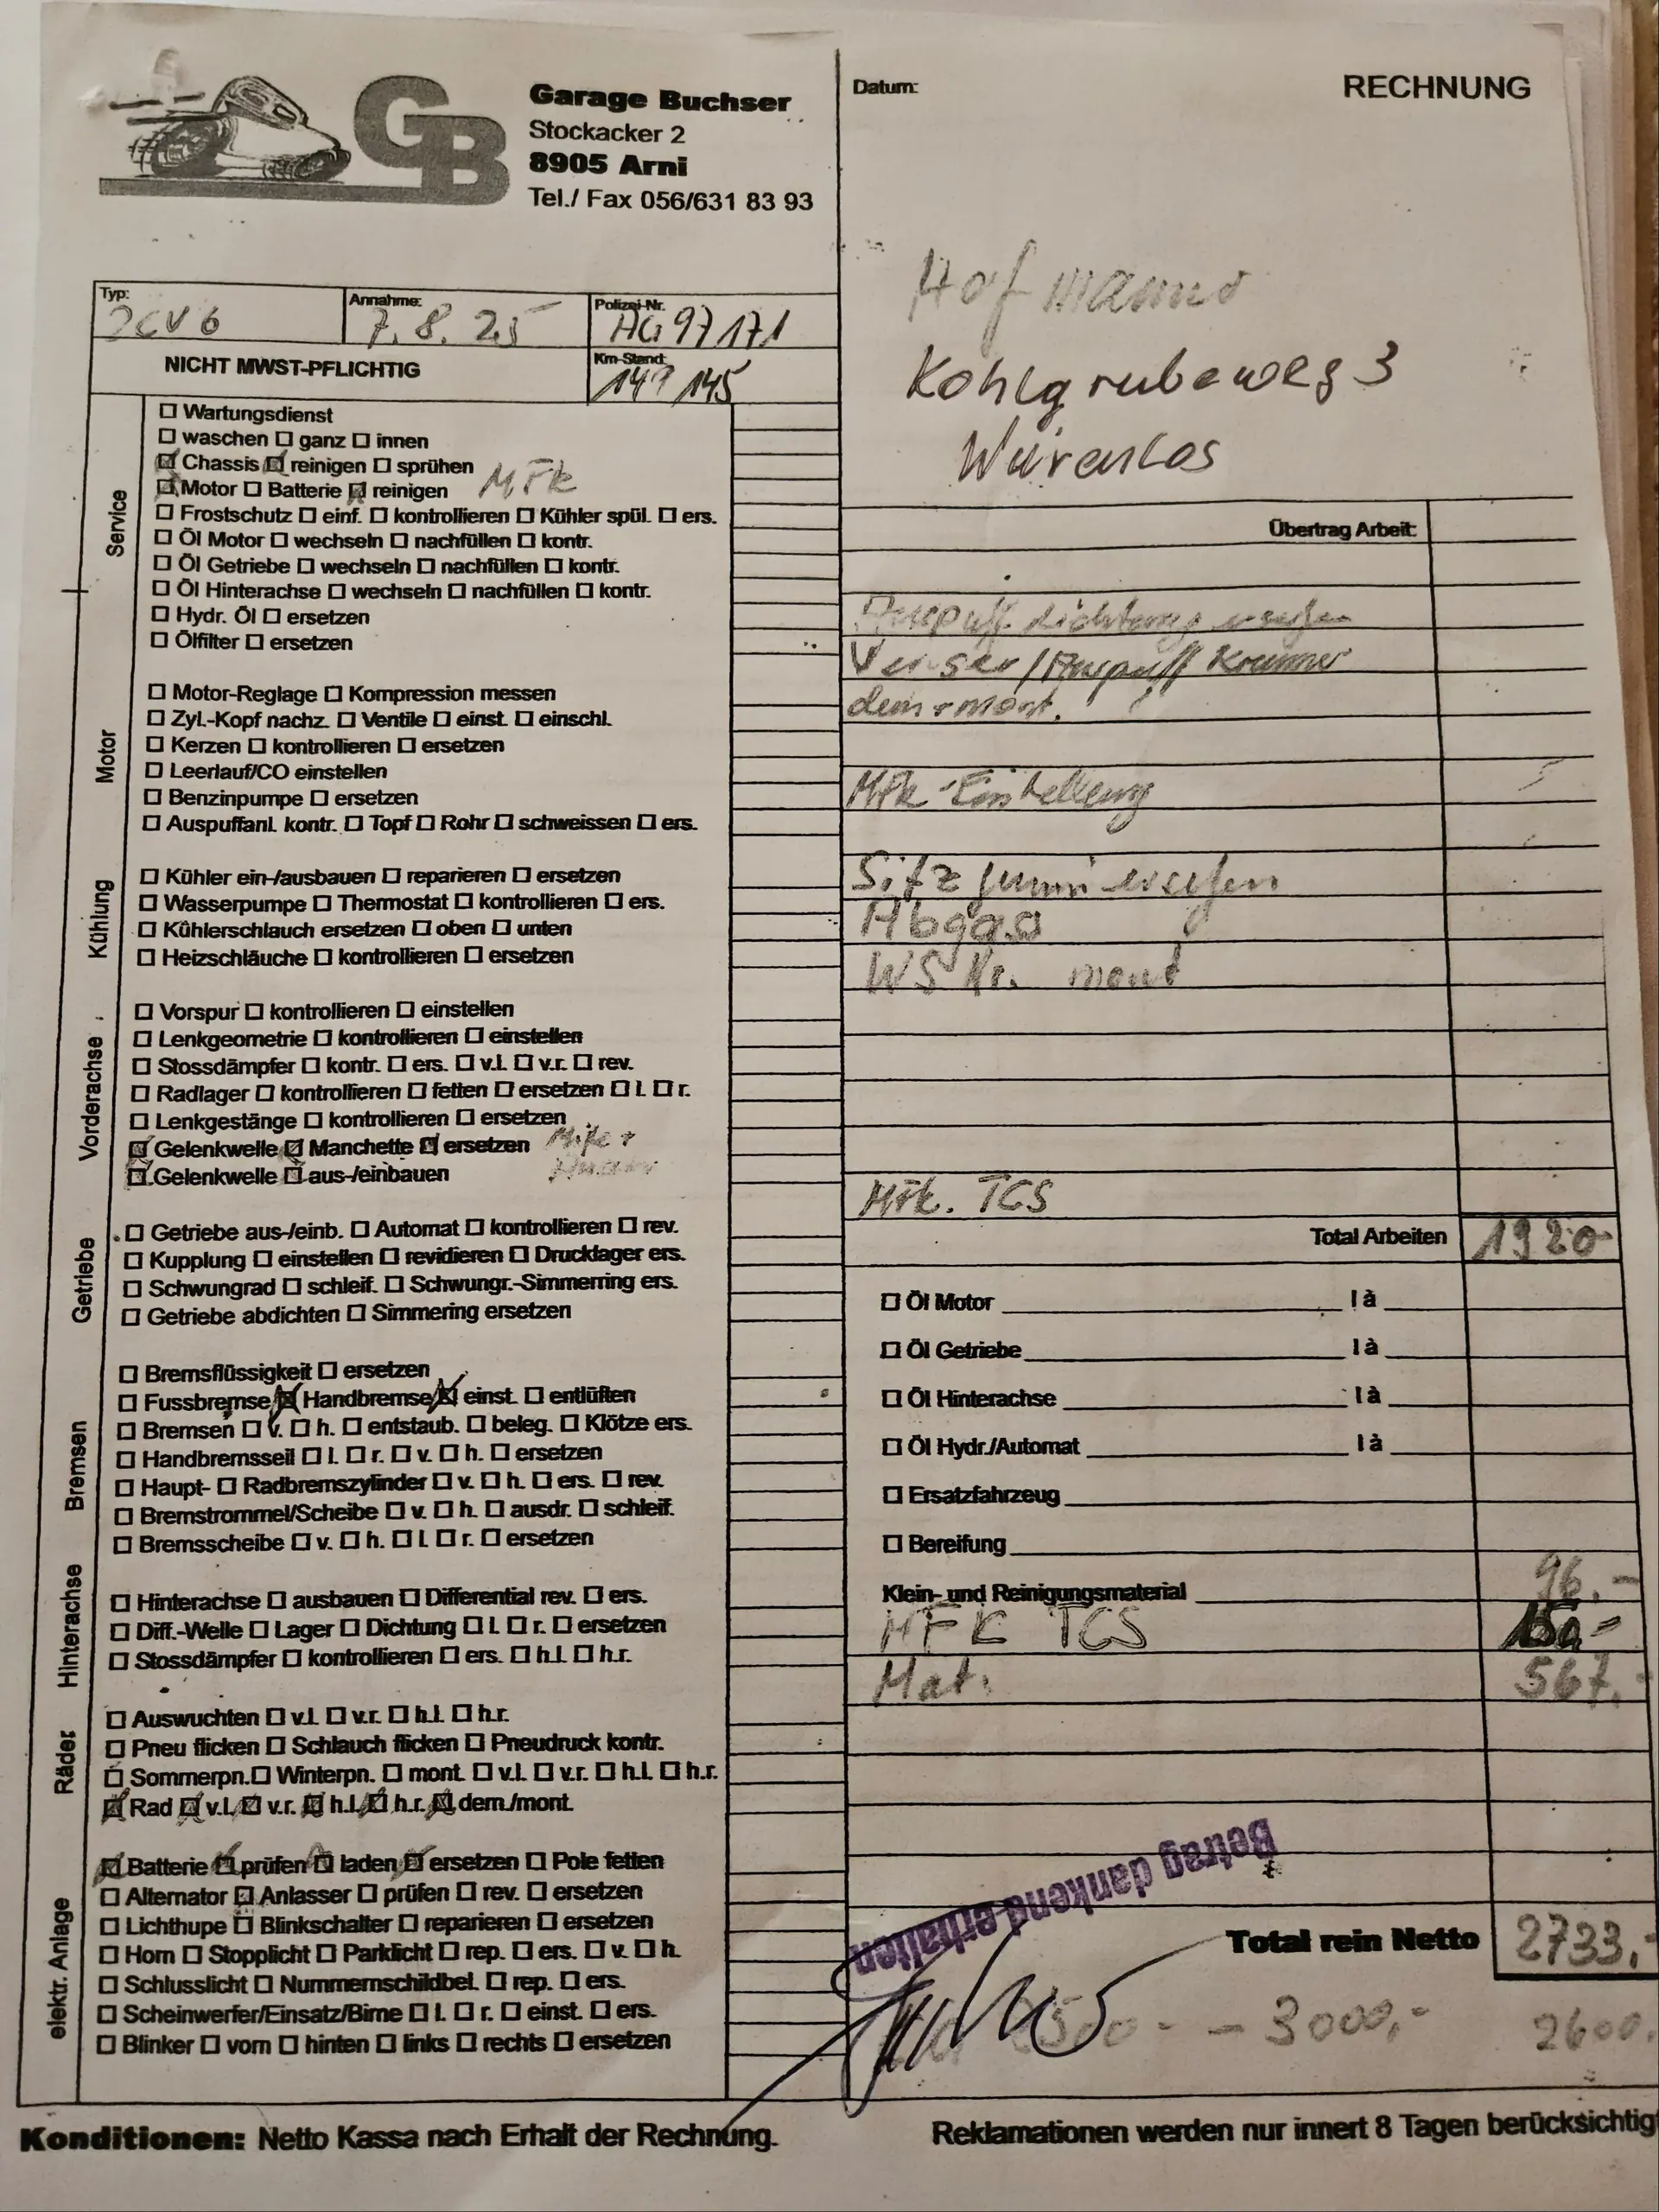 GB
Garage Buchser
Stockacker 2
8905 Arni
Tel./ Fax 056/631 83 93
Datum:
RECHNUNG
Hofmann
Kohlgrubeweg 3
Würenlos
Typ:
2CV6
Annahme:
7.8.25
Polizei-Nr.
AG 97171
NICHT MWST-PFLICHTIG
Km-Stand:
145
Service
☐ Wartungsdienst
☐ waschen ☐ ganz ☐ innen
☒ Chassis ☒ reinigen ☐ sprühen
☒ Motor ☐ Batterie ☒ reinigen MFK
☐ Frostschutz ☐ einf. ☐ kontrollieren ☐ Kühler spül. ☐ ers.
☐ Öl Motor ☐ wechseln ☐ nachfüllen ☐ kontr.
☐ Öl Getriebe ☐ wechseln ☐ nachfüllen ☐ kontr.
☐ Öl Hinterachse ☐ wechseln ☐ nachfüllen ☐ kontr.
☐ Hydr. Öl ☐ ersetzen
☐ Ölfilter ☐ ersetzen
Motor
☐ Motor-Reglage ☐ Kompression messen
☐ Zyl.-Kopf nachz. ☐ Ventile ☐ einst. ☐ einschl.
☐ Kerzen ☐ kontrollieren ☐ ersetzen
☐ Leerlauf/CO einstellen
☐ Benzinpumpe ☐ ersetzen
☐ Auspuffanl. kontr. ☐ Topf ☐ Rohr ☐ schweissen ☐ ers.
Kühlung
☐ Kühler ein-/ausbauen ☐ reparieren ☐ ersetzen
☐ Wasserpumpe ☐ Thermostat ☐ kontrollieren ☐ ers.
☐ Kühlerschlauch ersetzen ☐ oben ☐ unten
☐ Heizschläuche ☐ kontrollieren ☐ ersetzen
Vorderachse
☐ Vorspur ☐ kontrollieren ☐ einstellen
☐ Lenkgeometrie ☐ kontrollieren ☐ einstellen
☐ Stossdämpfer ☐ kontr. ☐ ers. ☐ v.l. ☐ v.r. ☐ rev.
☐ Radlager ☐ kontrollieren ☐ fetten ☐ ersetzen ☐ l. ☐ r.
☐ Lenkgestänge ☐ kontrollieren ☐ ersetzen
☒ Gelenkwelle ☒ Manchette ☒ ersetzen
☒ Gelenkwelle ☒ aus-/einbauen
Getriebe
☐ Getriebe aus-/einb. ☐ Automat ☐ kontrollieren ☐ rev.
☐ Kupplung ☐ einstellen ☐ revidieren ☐ Drucklager ers.
☐ Schwungrad ☐ schleif. ☐ Schwungr.-Simmerring ers.
☐ Getriebe abdichten ☐ Simmering ersetzen
Bremsen
☐ Bremsflüssigkeit ☐ ersetzen
☐ Fussbremse ☒ Handbremse ☒ einst. ☐ entlüften
☐ Bremsen ☐ v. ☐ h. ☐ entstaub. ☐ beleg. ☐ Klötze ers.
☐ Handbremsseil ☐ l. ☐ r. ☐ v. ☐ h. ☐ ersetzen
☐ Haupt- ☐ Radbremszylinder ☐ v. ☐ h. ☐ ers. ☐ rev.
☐ Bremstrommel/Scheibe ☐ v. ☐ h. ☐ ausdr. ☐ schleif.
☐ Bremsscheibe ☐ v. ☐ h. ☐ l. ☐ r. ☐ ersetzen
Hinterachse
☐ Hinterachse ☐ ausbauen ☐ Differential rev. ☐ ers.
☐ Diff.-Welle ☐ Lager ☐ Dichtung ☐ l. ☐ r. ☐ ersetzen
☐ Stossdämpfer ☐ kontrollieren ☐ ers. ☐ h.l. ☐ h.r.
Räder
☐ Auswuchten ☐ v.l. ☐ v.r. ☐ h.l. ☐ h.r.
☐ Pneu flicken ☐ Schlauch flicken ☐ Pneudruck kontr.
☐ Sommerpn. ☐ Winterpn. ☐ mont. ☐ v.l. ☐ v.r. ☐ h.l. ☐ h.r.
☒ Rad ☒ v.l. ☒ v.r. ☒ h.l. ☒ h.r. ☒ dem./mont.
elektr. Anlage
☒ Batterie ☒ prüfen ☒ laden ☒ ersetzen ☐ Pole fetten
☐ Alternator ☒ Anlasser ☐ prüfen ☐ rev. ☐ ersetzen
☐ Lichthupe ☐ Blinkschalter ☐ reparieren ☐ ersetzen
☐ Horn ☐ Stopplicht ☐ Parklicht ☐ rep. ☐ ers. ☐ v. ☐ h.
☐ Schlusslicht ☐ Nummernschildbel. ☐ rep. ☐ ers.
☐ Scheinwerfer/Einsatz/Birne ☐ l. ☐ r. ☐ einst. ☐ ers.
☐ Blinker ☐ vorn ☐ hinten ☐ links ☐ rechts ☐ ersetzen
Übertrag Arbeit:
Auspuff dichtung ersetzen
/ Auspuff Krümmer
dem + mont.
MFK-Einstellung
Sitzgummi ersetzen
Abgas
WS mont
MFK. TCS
Total Arbeiten 1920.-
☐ Öl Motor l à
☐ Öl Getriebe l à
☐ Öl Hinterachse l à
☐ Öl Hydr./Automat l à
☐ Ersatzfahrzeug
☐ Bereifung
Klein- und Reinigungsmaterial 96.-
MFK TCS 150.-
Mat. 567.-
Betrag dankend erhalten
Total rein Netto 2733.-
- 3000.- 2600.
Konditionen: Netto Kassa nach Erhalt der Rechnung.
Reklamationen werden nur innert 8 Tagen berücksichtig